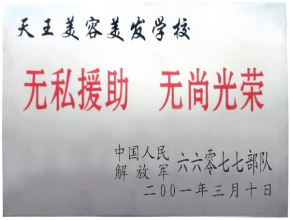 天王美容美发学校
无私援助 无尚光荣
中国人民
解放军 六六零七七部队
二00一年三月十日